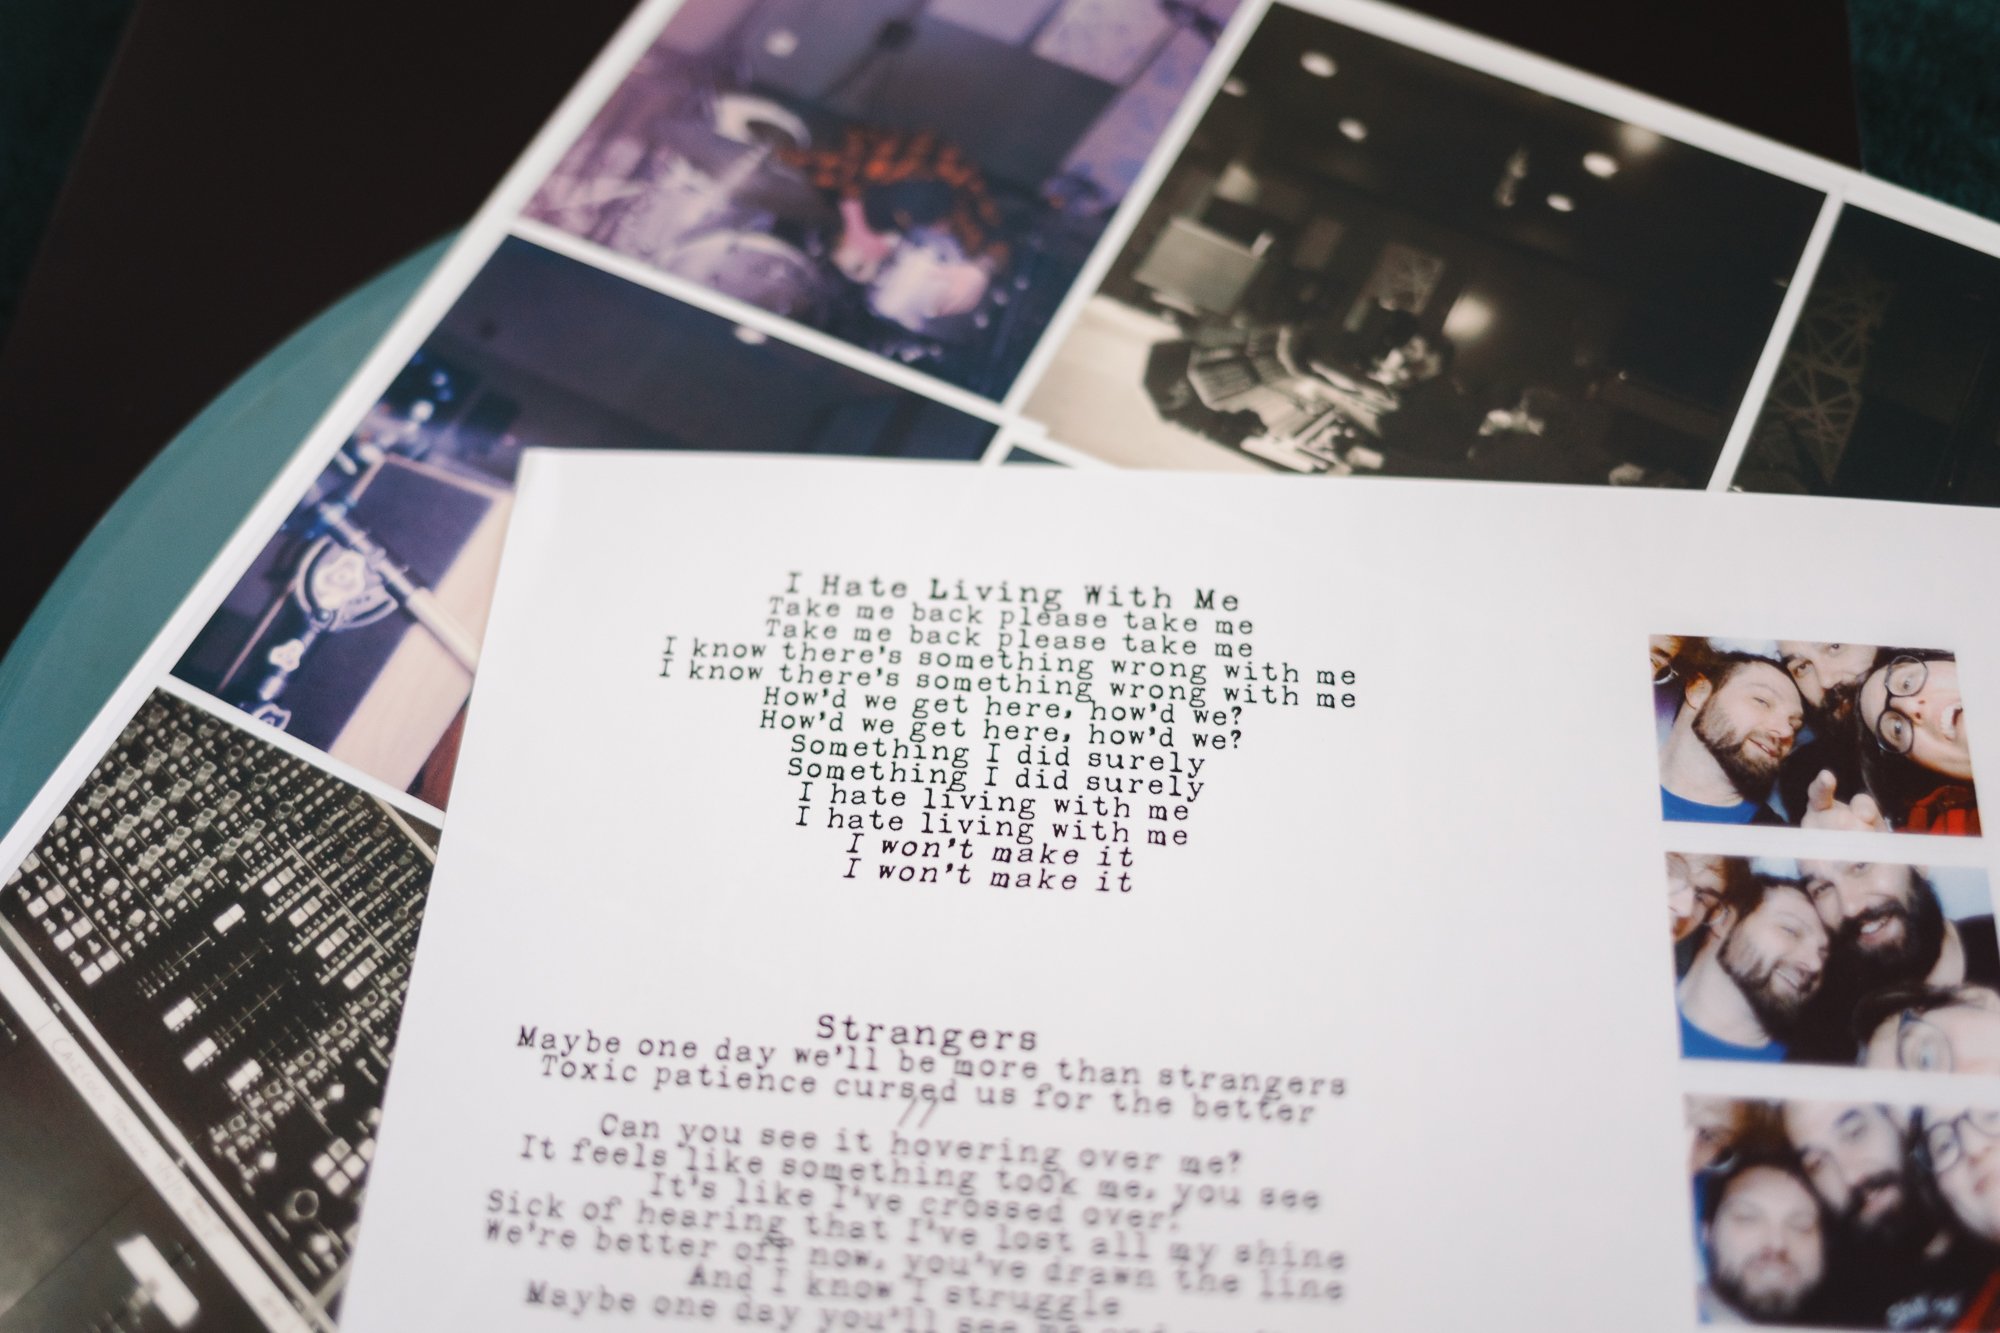 I Hate Living With Me
Take me back please take me
Take me back please take me
I know there's something wrong with me
I know there's something wrong with me
How'd we get here, how'd we?
How'd we get here, how'd we?
Something I did surely
Something I did surely
I hate living with me
I hate living with me
I won't make it
I won't make it
Strangers
Maybe one day we'll be more than strangers
Toxic patience cursed us for the better
//
Can you see it hovering over me?
It feels like something took me, you see
It's like I've crossed over!
Sick of hearing that I've lost all my shine
We're better off now, you've drawn the line
And I know I struggle
Maybe one day you'll see me and